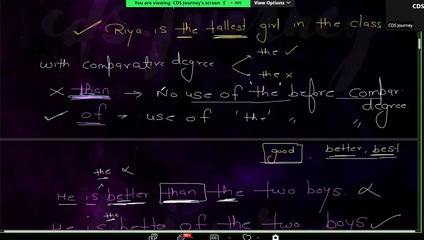 You are viewing CDS Journey's screen
View Options
CDS Journey
✓ Riya is the tallest girl in the class
with comparative degree < the ✓
the ×
× than → No use of 'the' before compar. degree
✓ of → use of 'the' " "
good, better, best
the ×
He is better than the two boys. ×
the
He is better of the two boys ✓